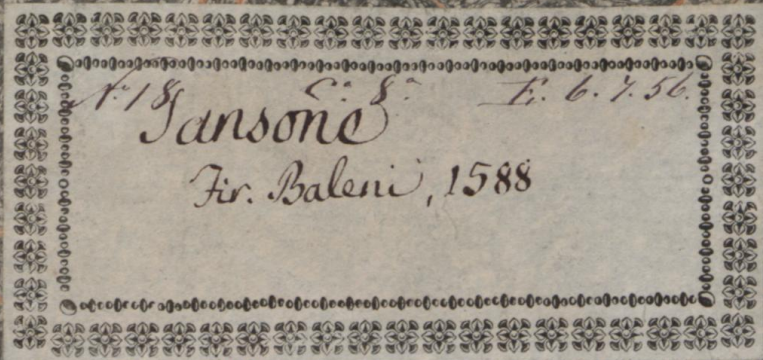 N.º 18 C.º 8.º E. 6. 7. 56.
Sansone
Fir. Baleni, 1588